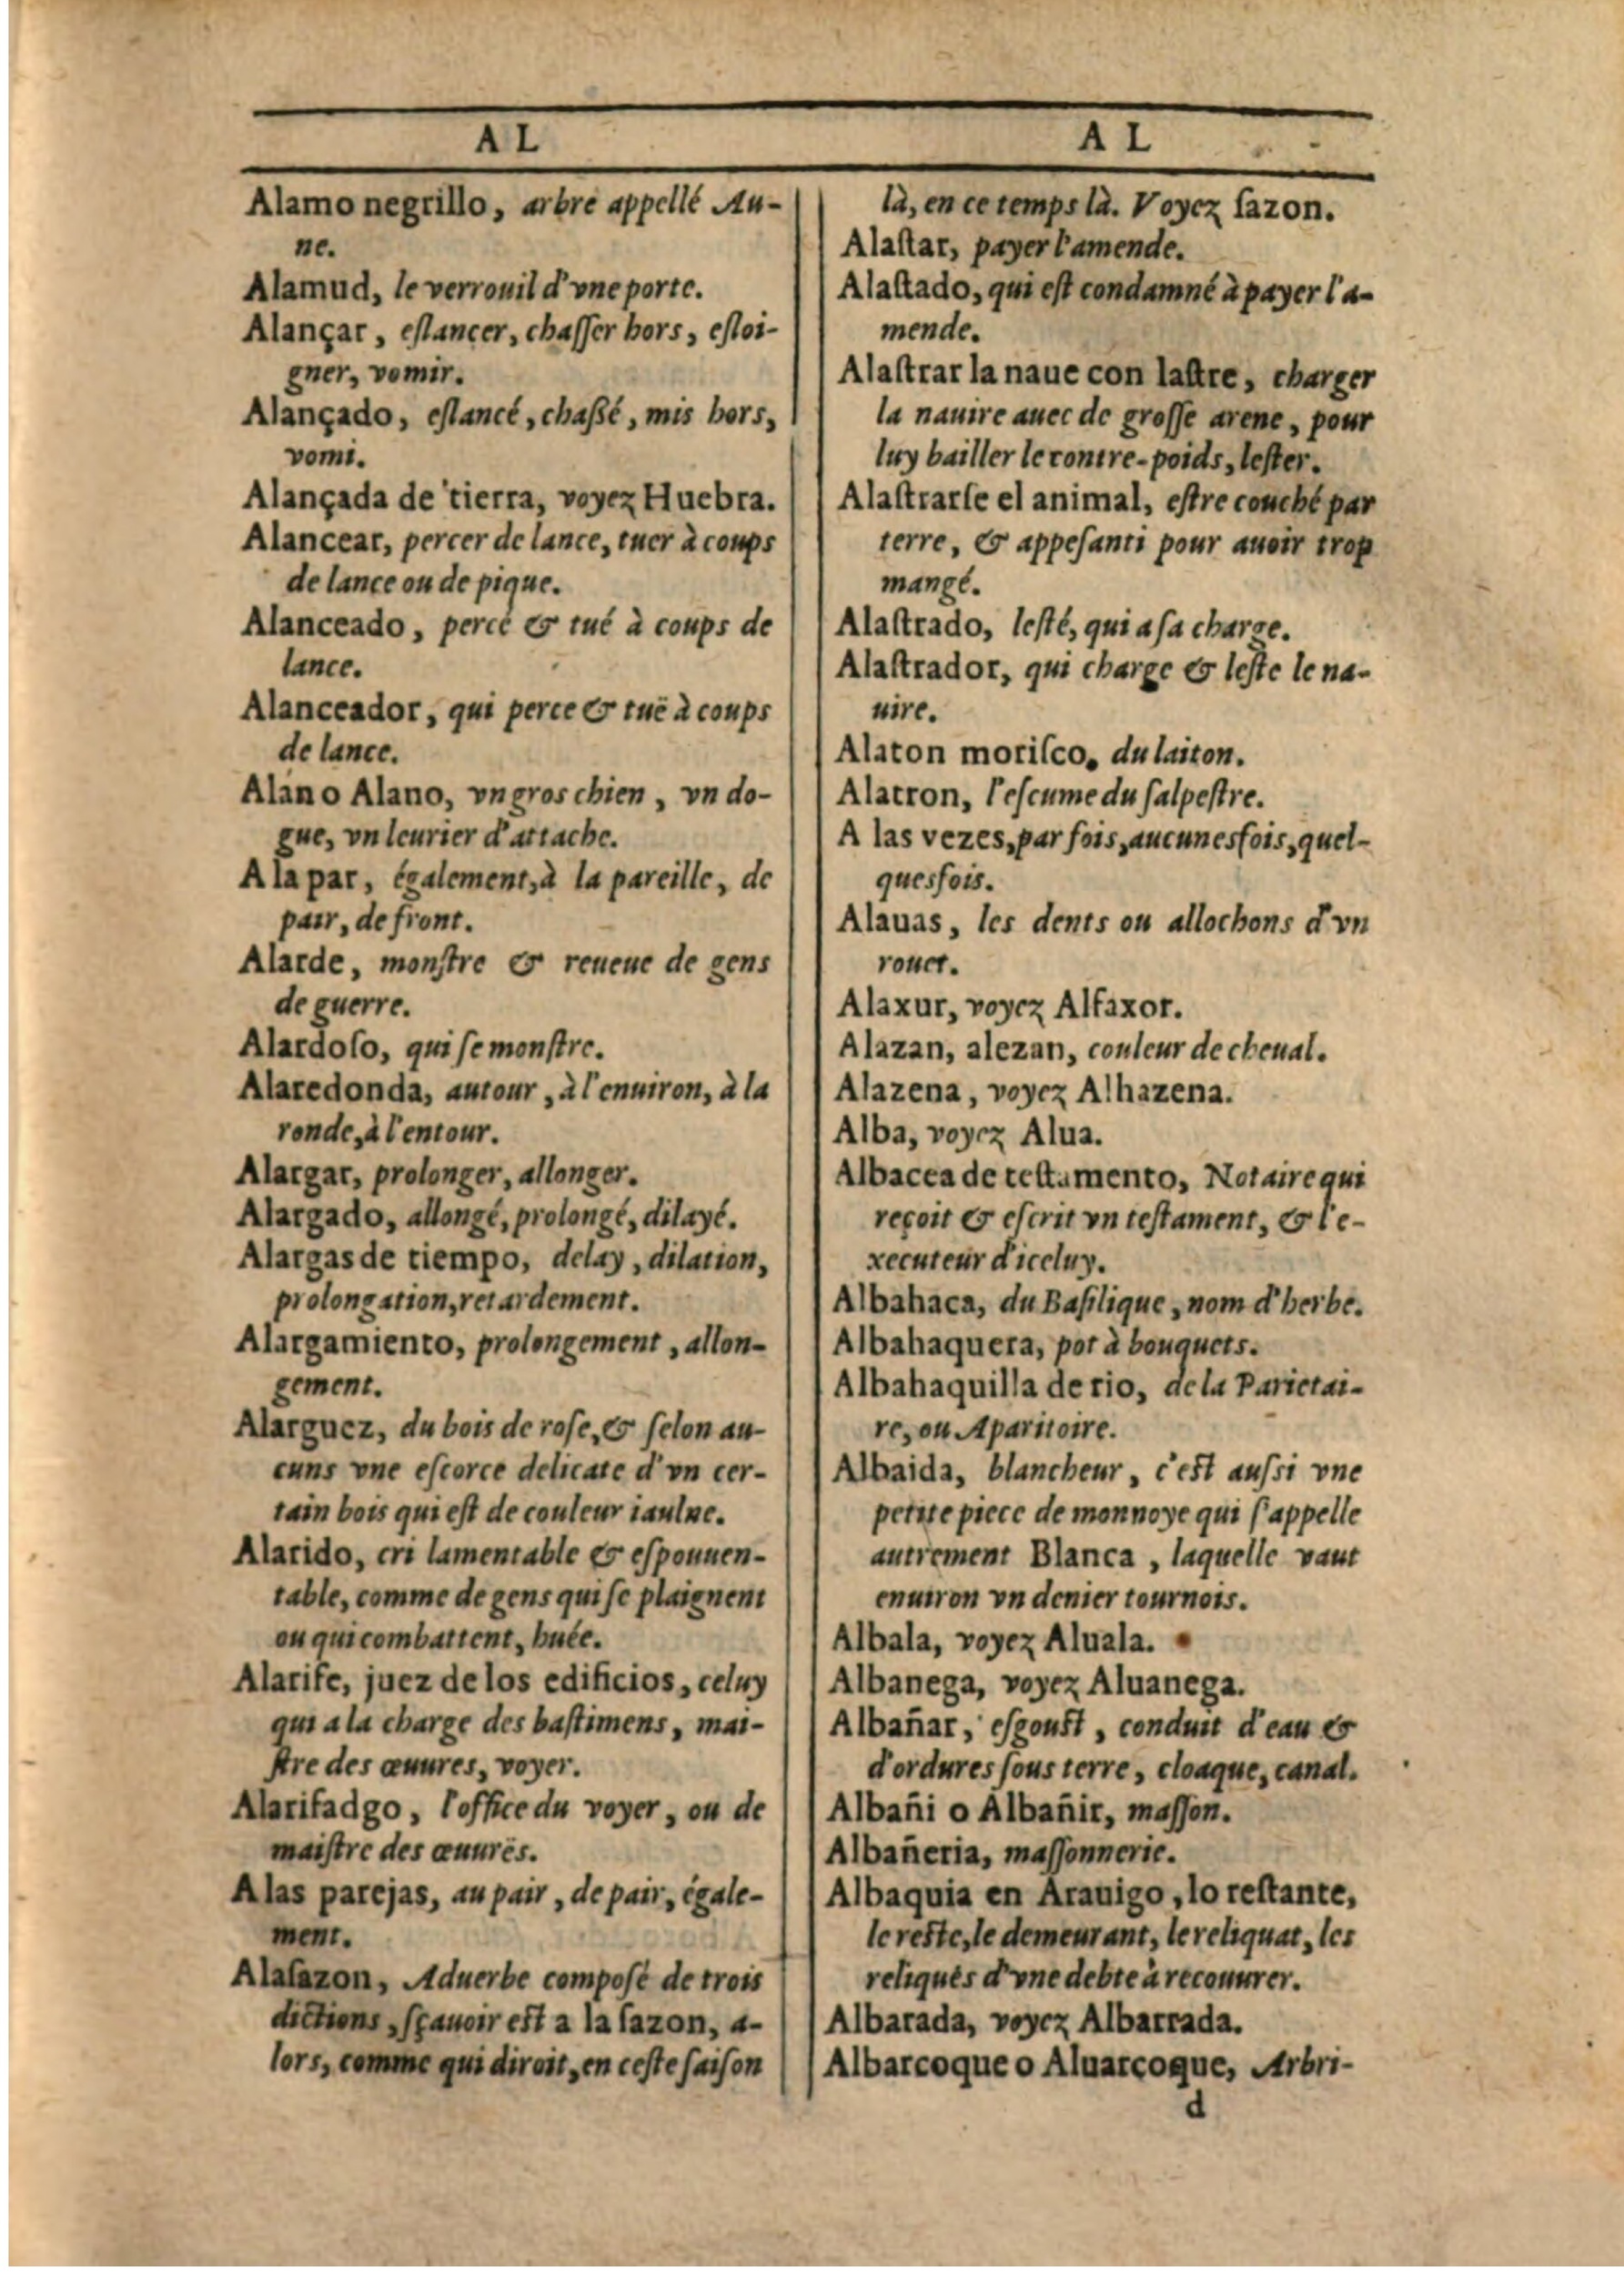 A L
Alamo negrillo, arbre appellé Au-
ne.
Alamud, le verrouil d'vne porte.
Alançar, eſlancer, chaſſer hors, eſloi-
gner, vomir.
Alançado, eſlancé, chaßé, mis hors,
vomi.
Alançada de tierra, voyez Huebra.
Alancear, percer de lance, tuer à coups
de lance ou de pique.
Alanceado, percé & tué à coups de
lance.
Alanceador, qui perce & tuë à coups
de lance.
Alan o Alano, vn gros chien, vn do-
gue, vn leurier d'attache.
A la par, également, à la pareille, de
pair, de front.
Alarde, monſtre & reueue de gens
de guerre.
Alardoſo, qui ſe monſtre.
Alaredonda, autour, à l'enuiron, à la
ronde, à l'entour.
Alargar, prolonger, allonger.
Alargado, allongé, prolongé, dilayé.
Alargas de tiempo, delay, dilation,
prolongation, retardement.
Alargamiento, prolongement, allon-
gement.
Alarguez, du bois de roſe, & ſelon au-
cuns vne eſcorce delicate d'vn cer-
tain bois qui eſt de couleur iaulne.
Alarido, cri lamentable & eſpouuen-
table, comme de gens qui ſe plaignent
ou qui combattent, huée.
Alarife, juez de los edificios, celuy
qui a la charge des baſtimens, mai-
ſtre des œuures, voyer.
Alarifadgo, l'office du voyer, ou de
maiſtre des œuures.
A las parejas, au pair, de pair, égale-
ment.
Alaſazon, Aduerbe composé de trois
dictions, ſçauoir eſt a la ſazon, a-
lors, comme qui diroit, en ceſte ſaiſon
A L
là, en ce temps là. Voyez ſazon.
Alaſtar, payer l'amende.
Alaſtado, qui eſt condamné à payer l'a-
mende.
Alaſtrar la naue con laſtre, charger
la nauire auec de groſſe arene, pour
luy bailler le contre-poids, leſter.
Alaſtrarſe el animal, eſtre couché par
terre, & appeſanti pour auoir trop
mangé.
Alaſtrado, leſté, qui a ſa charge.
Alaſtrador, qui charge & leſte le na-
uire.
Alaton moriſco, du laiton.
Alatron, l'eſcume du ſalpeſtre.
A las vezes, par fois, aucunesfois, quel-
quesfois.
Alauas, les dents ou allochons d'vn
rouet.
Alaxur, voyez Alfaxor.
Alazan, alezan, couleur de cheual.
Alazena, voyez Alhazena.
Alba, voyez Alua.
Albacea de teſtamento, Notaire qui
reçoit & eſcrit vn teſtament, & l'e-
xecuteur d'iceluy.
Albahaca, du Baſilique, nom d'herbe.
Albahaquera, pot à bouquets.
Albahaquilla de rio, de la Parietai-
re, ou Aparitoire.
Albaida, blancheur, c'eſt auſſi vne
petite piece de monnoye qui ſ'appelle
autrement Blanca, laquelle vaut
enuiron vn denier tournois.
Albala, voyez Aluala.
Albanega, voyez Aluanega.
Albañar, eſgouſt, conduit d'eau &
d'ordures ſous terre, cloaque, canal.
Albañi o Albañir, maſſon.
Albañeria, maſſonnerie.
Albaquia en Arauigo, lo reſtante,
le reſte, le demeurant, le reliquat, les
reliqués d'vne debte à recouurer.
Albarada, voyez Albarrada.
Albarcoque o Aluarcoque, Arbri-
d